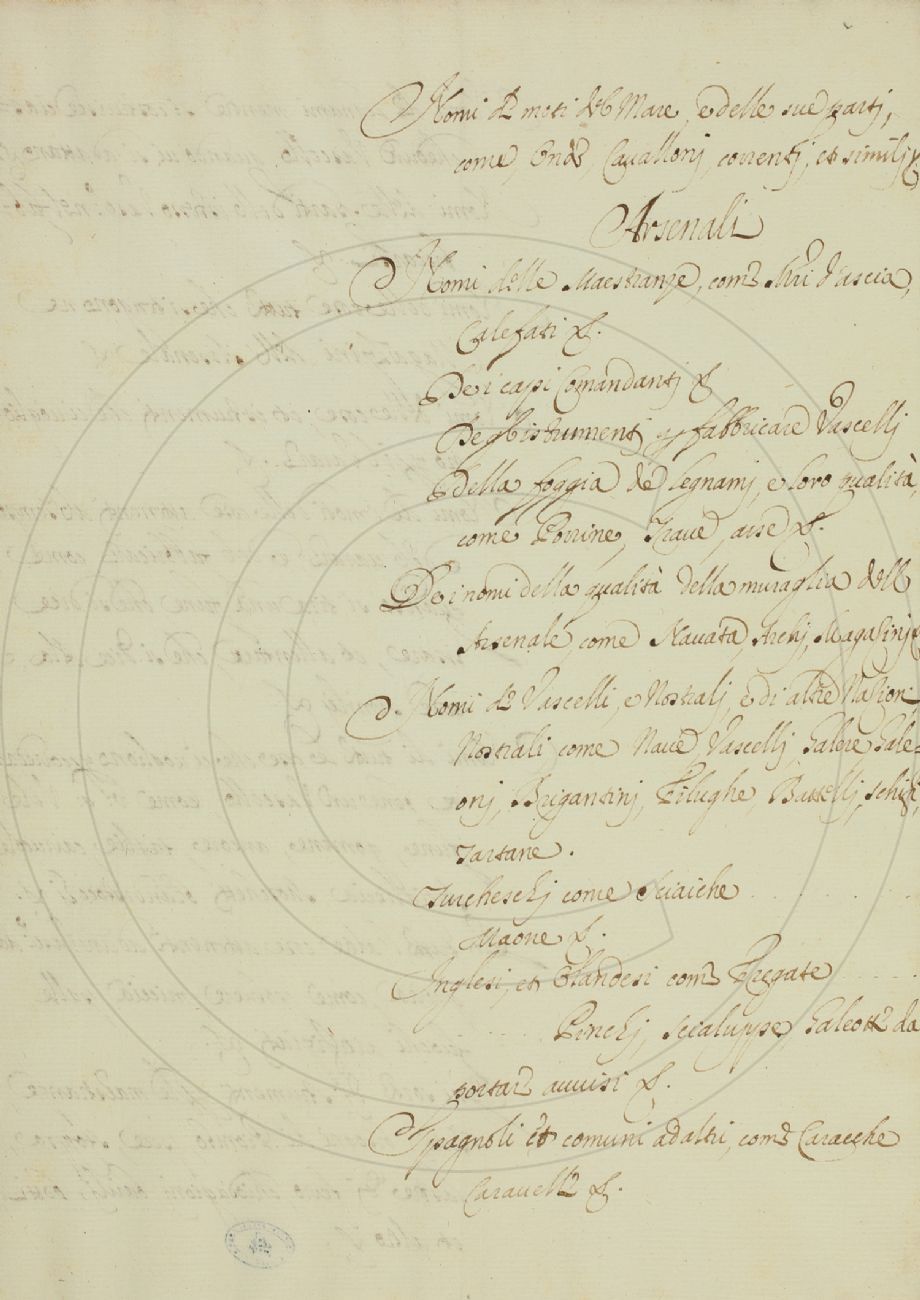 Nomi de moti del Mare, e delle sue partj,
come, Onde, Cavallonj, correntj, et similj &c
Arsenali
Nomi delle Maestranze, come Mri d'ascia,
Calefati &c.
De i capi Comandantj &c
Degl'istrumentj per fabbricare Vascellj
Della foggia de Legnamj, e loro qualità
come Porrine, Trave, asse &c.
De i nomi della qualità della muraglia dell
Arsenale, come Navata, Archj, Magasinj &c
Nomi de Vascelli, e Nostralj, e di altre Nasionj
Nostrali come Nave, Vascellj, Galere Gale=
onj, Brigantinj, Filughe, Battellj, schifi,
Tartane.
Turcheschj come Sciaiche
Maone &c.
Inglesi, et Olandesi come Fregate
Pinchj, Scialuppe, Galeotte da
portare auuisi &c.
Spagnoli et comuni ad altri, come Caracche
Caravelle &c.